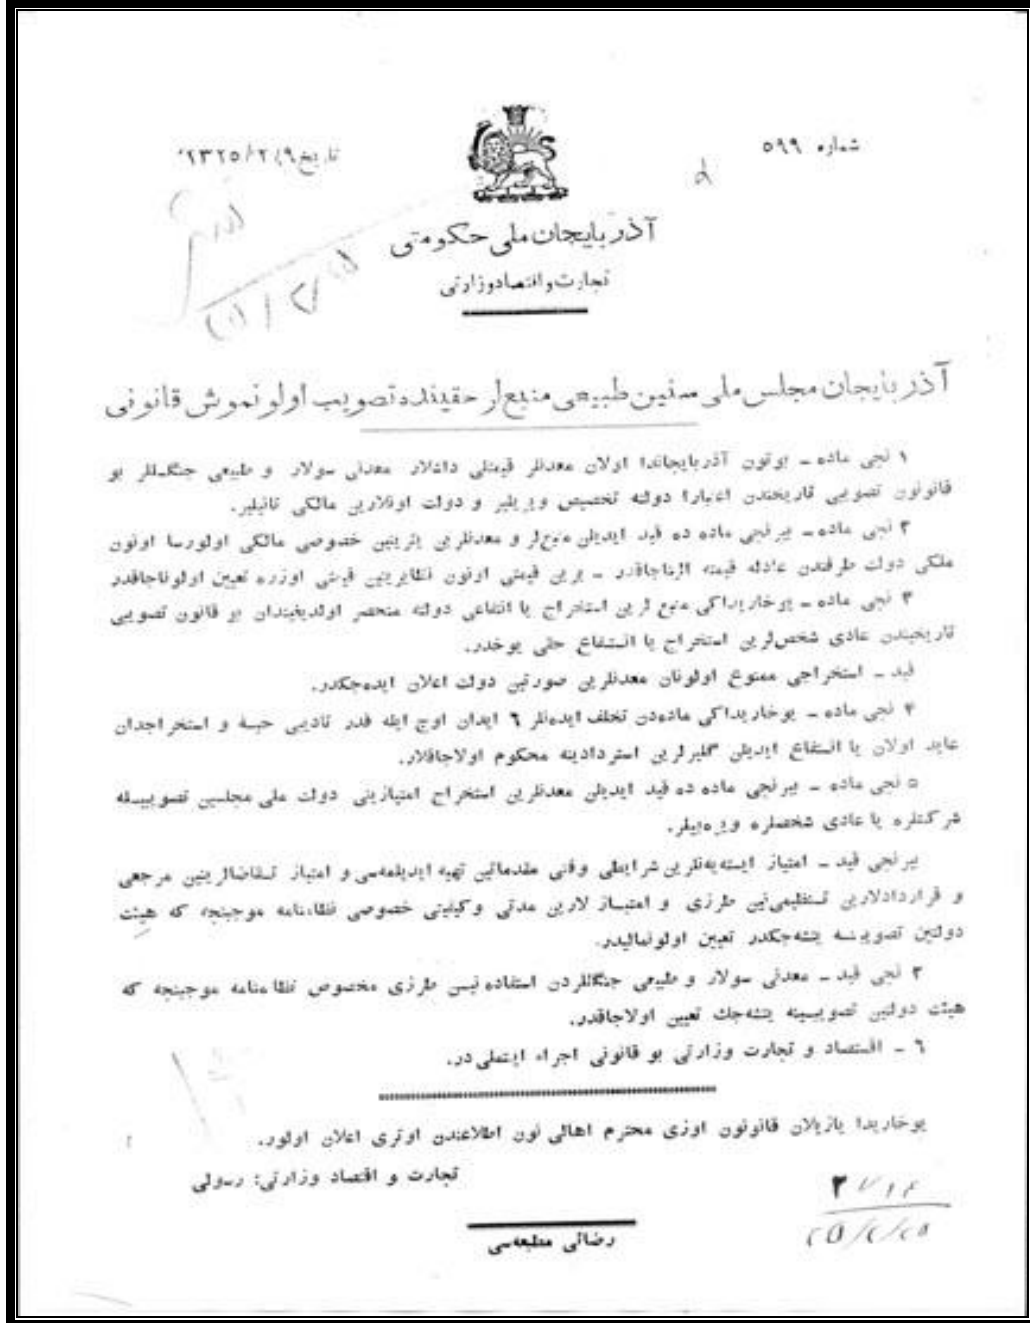 شماره ۵۹۹
تاریخ ۲۳۲۵/۲/۹
آذربایجان ملی حکومتی
تجارت و اقتصاد وزارتی
آذربایجان مجلس ملی سنین طبیعی منبع‌لر حقینده تصویب اولونموش قانونی
۱ نجی ماده ـ بوتون آذربایجاندا اولان معدنلر قیمتلی داشلار معدنی سولار و طبیعی جنگللر بو
قانونون تصویبی تاریخندن اعتبارا دولته تخصیص ویریلیر و دولت اونلارین مالکی تانیلیر.
۲ نجی ماده ـ بیرنجی ماده ده قید ایدیلن منبع‌لر و معدنلرین یئرینین خصوصی مالکی اولورسا اونون
ملکی دولت طرفندن عادله قیمته آلیناجاقدر ـ یرین قیمتی اونون نظایرینین قیمتی اوزره تعیین اولوناجاقدر
۳ نجی ماده ـ یوخاریداکی منبع لرین استخراج یا انتفاعی دولته منحصر اولدیغیندان بو قانون تصویبی
تاریخیندن عادی شخص‌لرین استخراج یا انتفاع حقی یوخدر.
قید ـ استخراجی ممنوع اولونان معدنلرین صورتین دولت اعلان ایده‌جکدر.
۴ نجی ماده ـ یوخاریداکی ماده‌دن تخلف ایده‌نلر ۶ ایدان اوج ایله قدر تادیبی حبسه و استخراجدان
عاید اولان یا انتفاع ایدیلن گلیرلرین استردادینه محکوم اولاجاقلار.
۵ نجی ماده ـ بیرنجی ماده ده قید ایدیلن معدنلرین استخراج امتیازینی دولت ملی مجلسین تصویبیله
شرکتلره یا عادی شخصلره ویره‌بیلر.
بیرنجی قید ـ امتیاز ایسته‌یه‌نلرین شرایطی وفنی مقدماتین تهیه ایدیلمه‌سی و امتیاز تقاضالرینین مرجعی
و قراردادلارین تنظیمی‌نین طرزی و امتیاز لارین مدتی وکیفیتی خصوصی نظامنامه موجبنجه که هیئت
دولتین تصویبینه یتشه‌جکدر تعیین اولونمالیدر.
۲ نجی قید ـ معدنی سولار و طبیعی جنگللردن استفاده نیین طرزی مخصوص نظامنامه موجبینجه که
هیئت دولتین تصویبینه یتشه‌جك تعیین اولاجاقدر.
۶ ـ اقتصاد و تجارت وزارتی بو قانونی اجراء ایتملی‌در.
یوخاریدا یازیلان قانونون اوزی محترم اهالی نون اطلاعندن اوتری اعلان اولور.
تجارت و اقتصاد وزارتی: رسولی
رضائی مطبعه‌سی